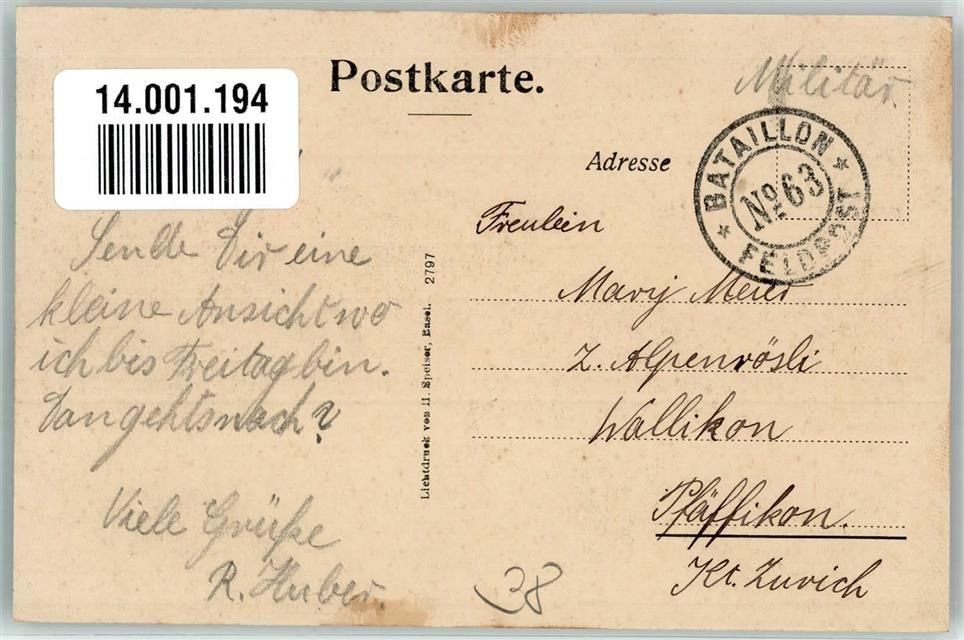 Postkarte.
Militär.
14.001.194
BATAILLON
No 63
FELDPOST
Adresse
Sende Dir eine
kleine Ansicht wo
ich bis Freitag bin.
Dan gehts nach?
Viele Grüße
R. Huber.
Lichtdruck von H. Speiser, Basel. 2797
Freulein
Mary Meier
z. Alpenrösli
Wallikon
Pfäffikon.
Kt. Zurich
38